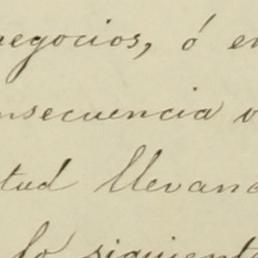 negocios, ó en
nsecuencia v
tud llevand
lo siguiente